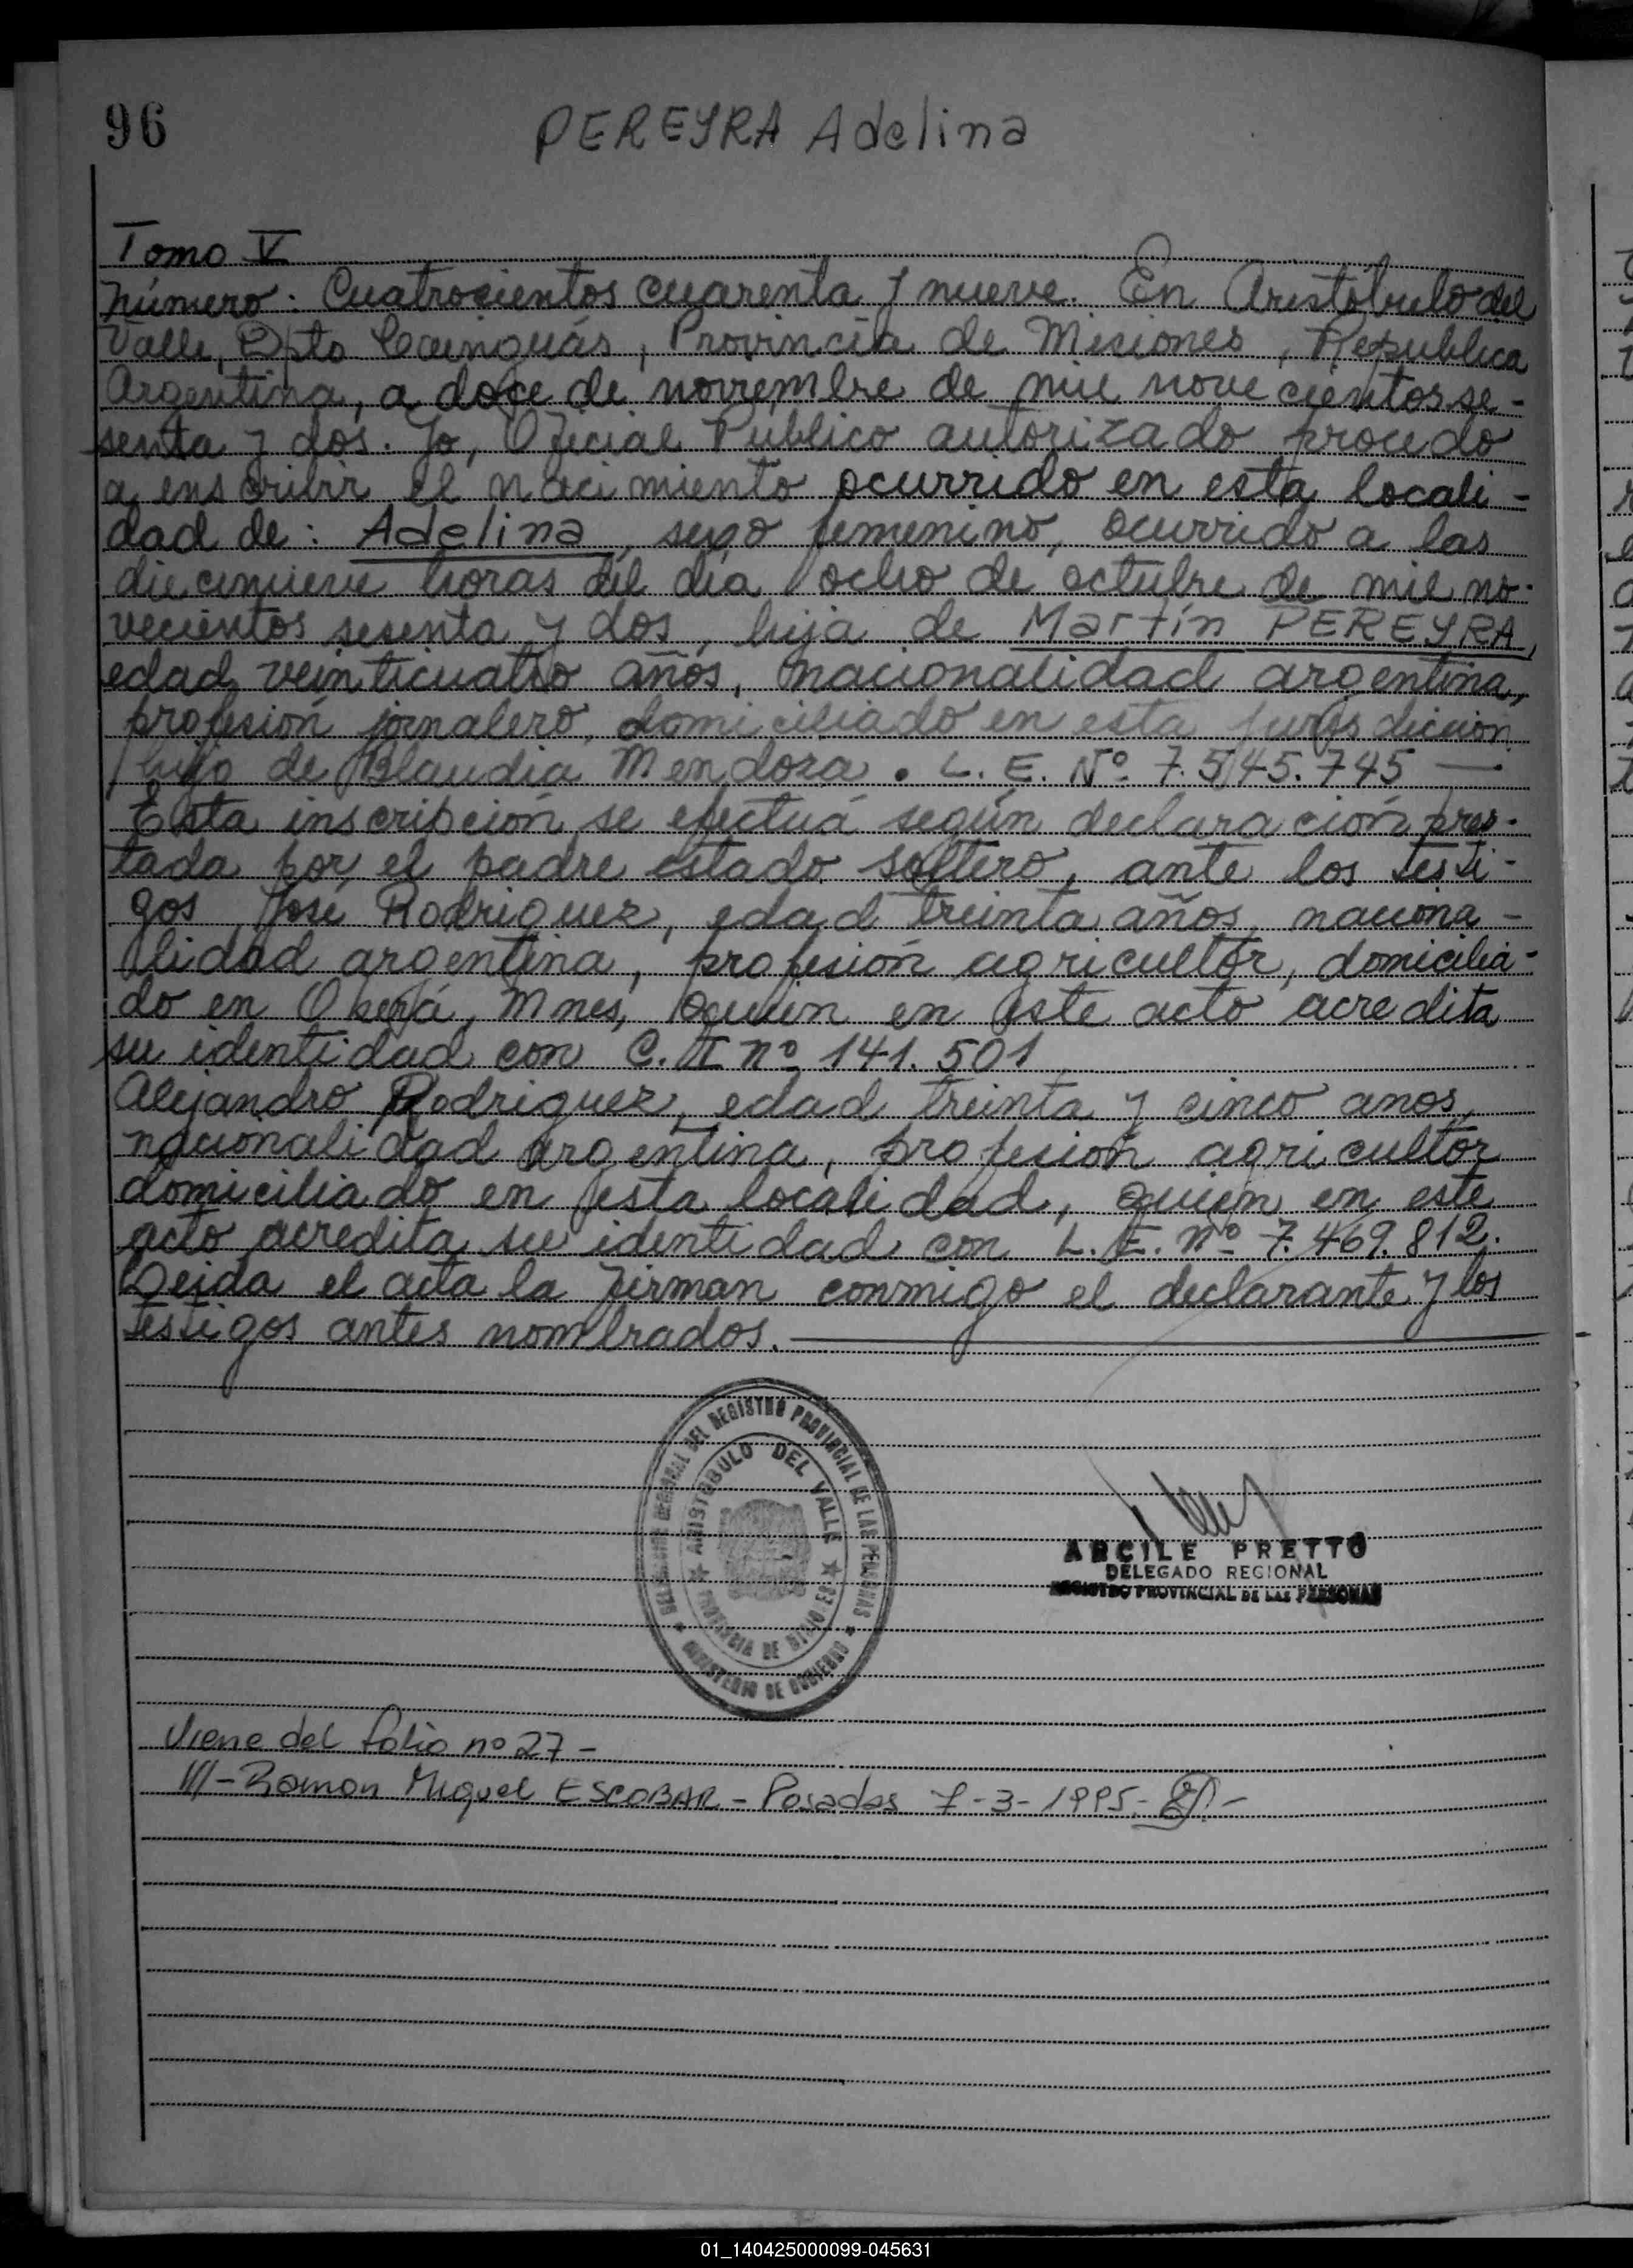 96
PEREYRA Adelina
Tomo V
número: Cuatrocientos cuarenta y nueve. En Aristóbulo del
Valle, Dpto Cainguás, Provincia de Misiones, Republica
Argentina, a doce de noviembre de mil novecientos se-
senta y dos. Yo, Oficial Publico autorizado procedo
a enscribir el nacimiento ocurrido en esta locali-
dad de: Adelina, sexo femenino, ocurrido a las
diecinueve horas del día ocho de octubre de mil no-
vecientos sesenta y dos, hija de Martín PEREYRA,
edad veinticuatro años, nacionalidad argentina,
profesión jornalero, domiciliado en esta jurisdiccion
hijo de Blaudia Mendoza. L. E. Nº 7.545.745 —
Esta inscripción se efectuá según declaración pres-
tada por el padre estado soltero, ante los testi-
gos José Rodriguez, edad treinta años, naciona-
lidad argentina, profesión agricultor, domicilia-
do en Oberá, Mnes, quien en este acto acredita
su identidad con C. I nº 141.501
Alejandro Rodriguez, edad treinta y cinco anos,
nacionalidad argentina, profesión agricultor
domiciliado en esta localidad, quien en este
acto acredita su identidad con L. E. nº 7.469.812.
Leida el acta la firman conmigo el declarante y los
testigos antes nombrados.
DELEGACION REGIONAL DEL REGISTRO PROVINCIAL DE LAS PERSONAS
ARISTOBULO DEL VALLE
PROVINCIA DE MISIONES
MINISTERIO DE GOBIERNO
ARCILE PRETTO
DELEGADO REGIONAL
REGISTRO PROVINCIAL DE LAS PERSONAS
Viene del folio nº 27 -
III - Ramon Miguel ESCOBAR - Posadas 7-3-1995.-
01_140425000099-045631